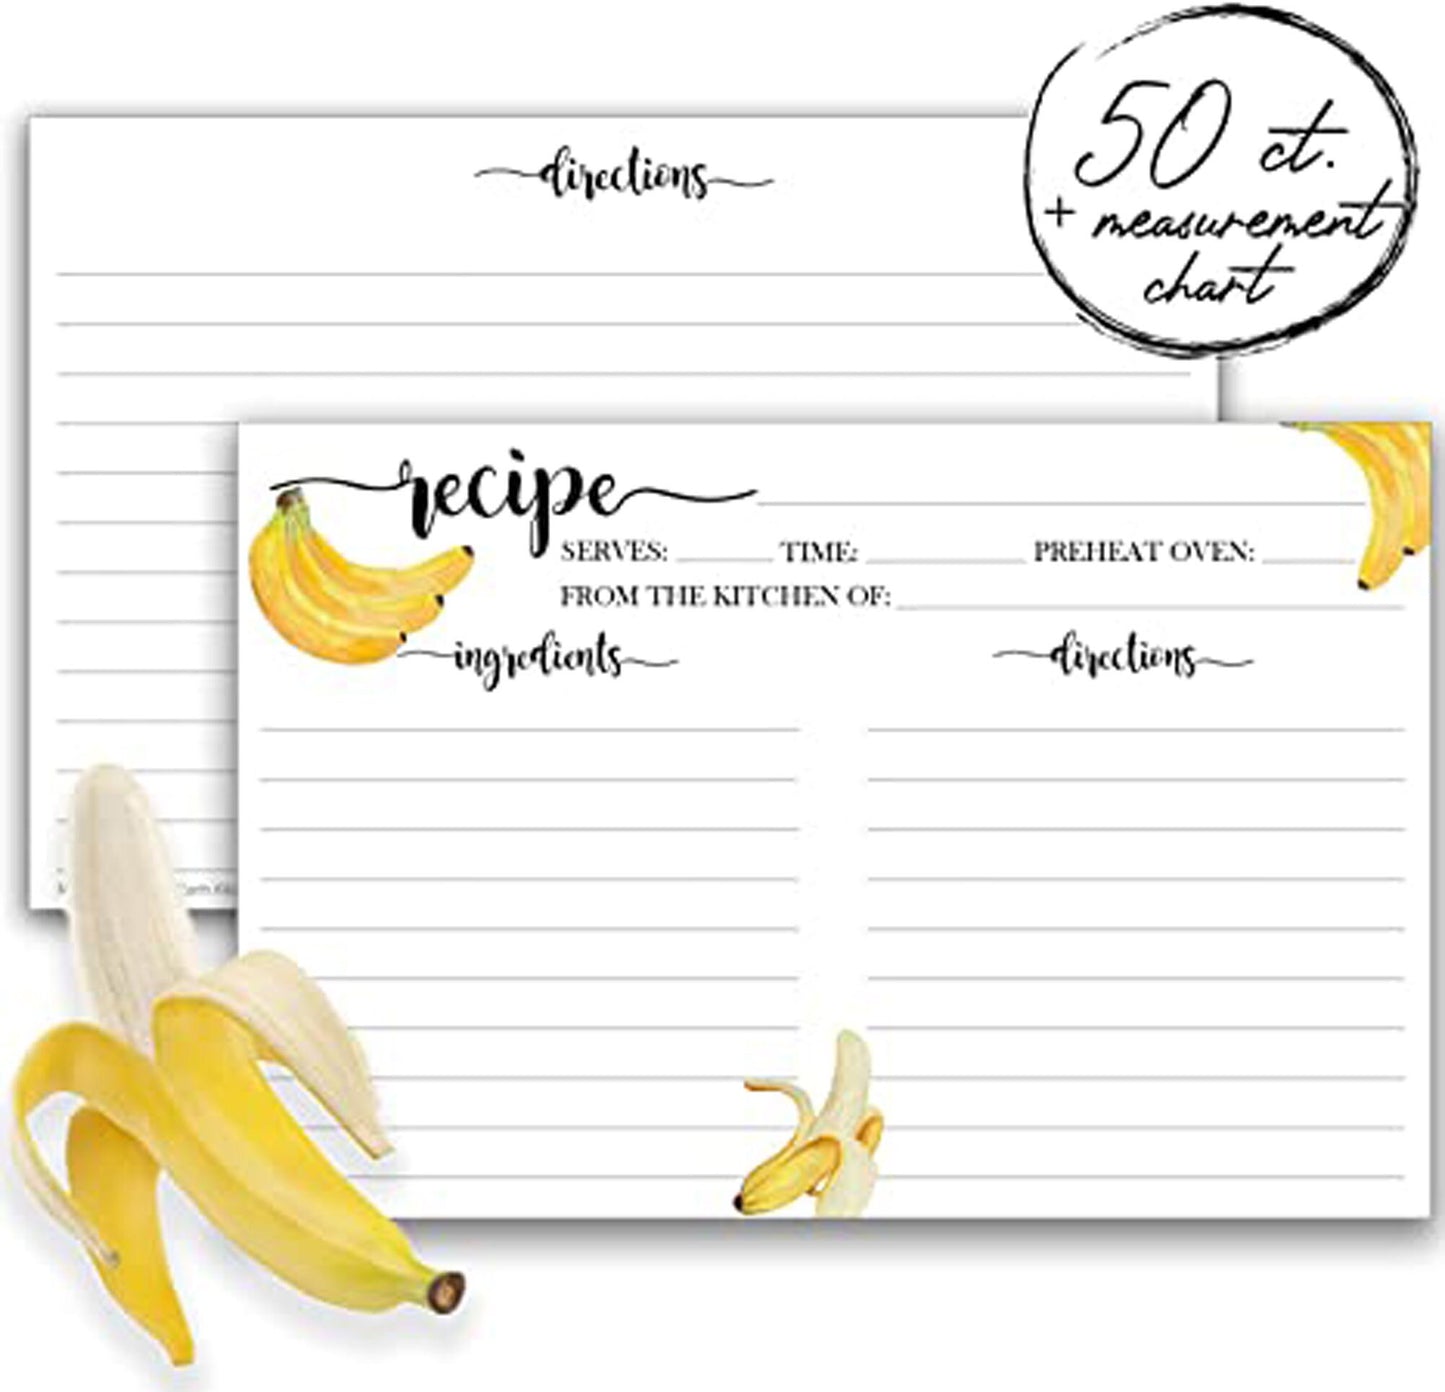 50 ct.
+ measurement
chart
directions
recipe
SERVES: TIME: PREHEAT OVEN:
FROM THE KITCHEN OF:
ingredients directions
Earth